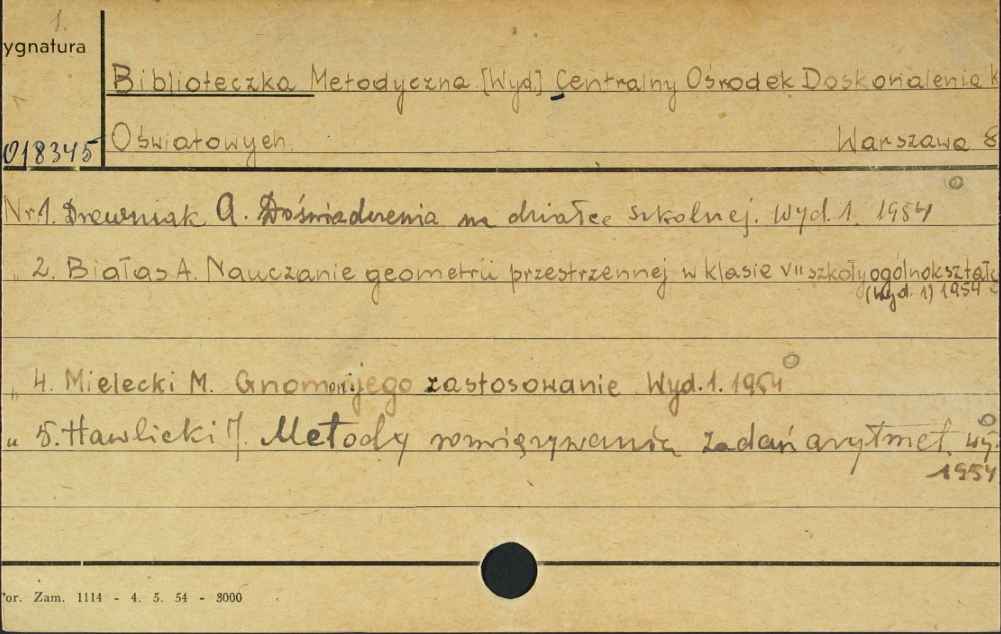 1.
ygnatura
Biblioteczka Metodyczna [Wyd.] Centralny Ośrodek Doskonalenia K
018345 Oświatowych. Warszawa 8
Nr 1. Drewniak A. Doświadczenia na działce szkolnej. Wyd. 1. 1954
„ 2. Białas A. Nauczanie geometrii przestrzennej w klasie VII szkoły ogólnokształc
(Wyd. 1) 1954
„ 4. Mielecki M. Gnomon i jego zastosowanie. Wyd. 1. 1954
„ 5. Hawlicki J. Metody rozwiązywania zadań arytmet. Wy.
1954
or. Zam. 1114 - 4. 5. 54 - 3000